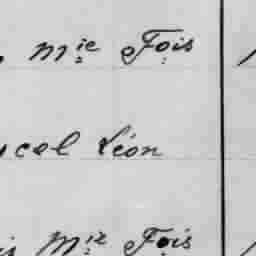 Mie Fois
cel Léon
Mie Fois